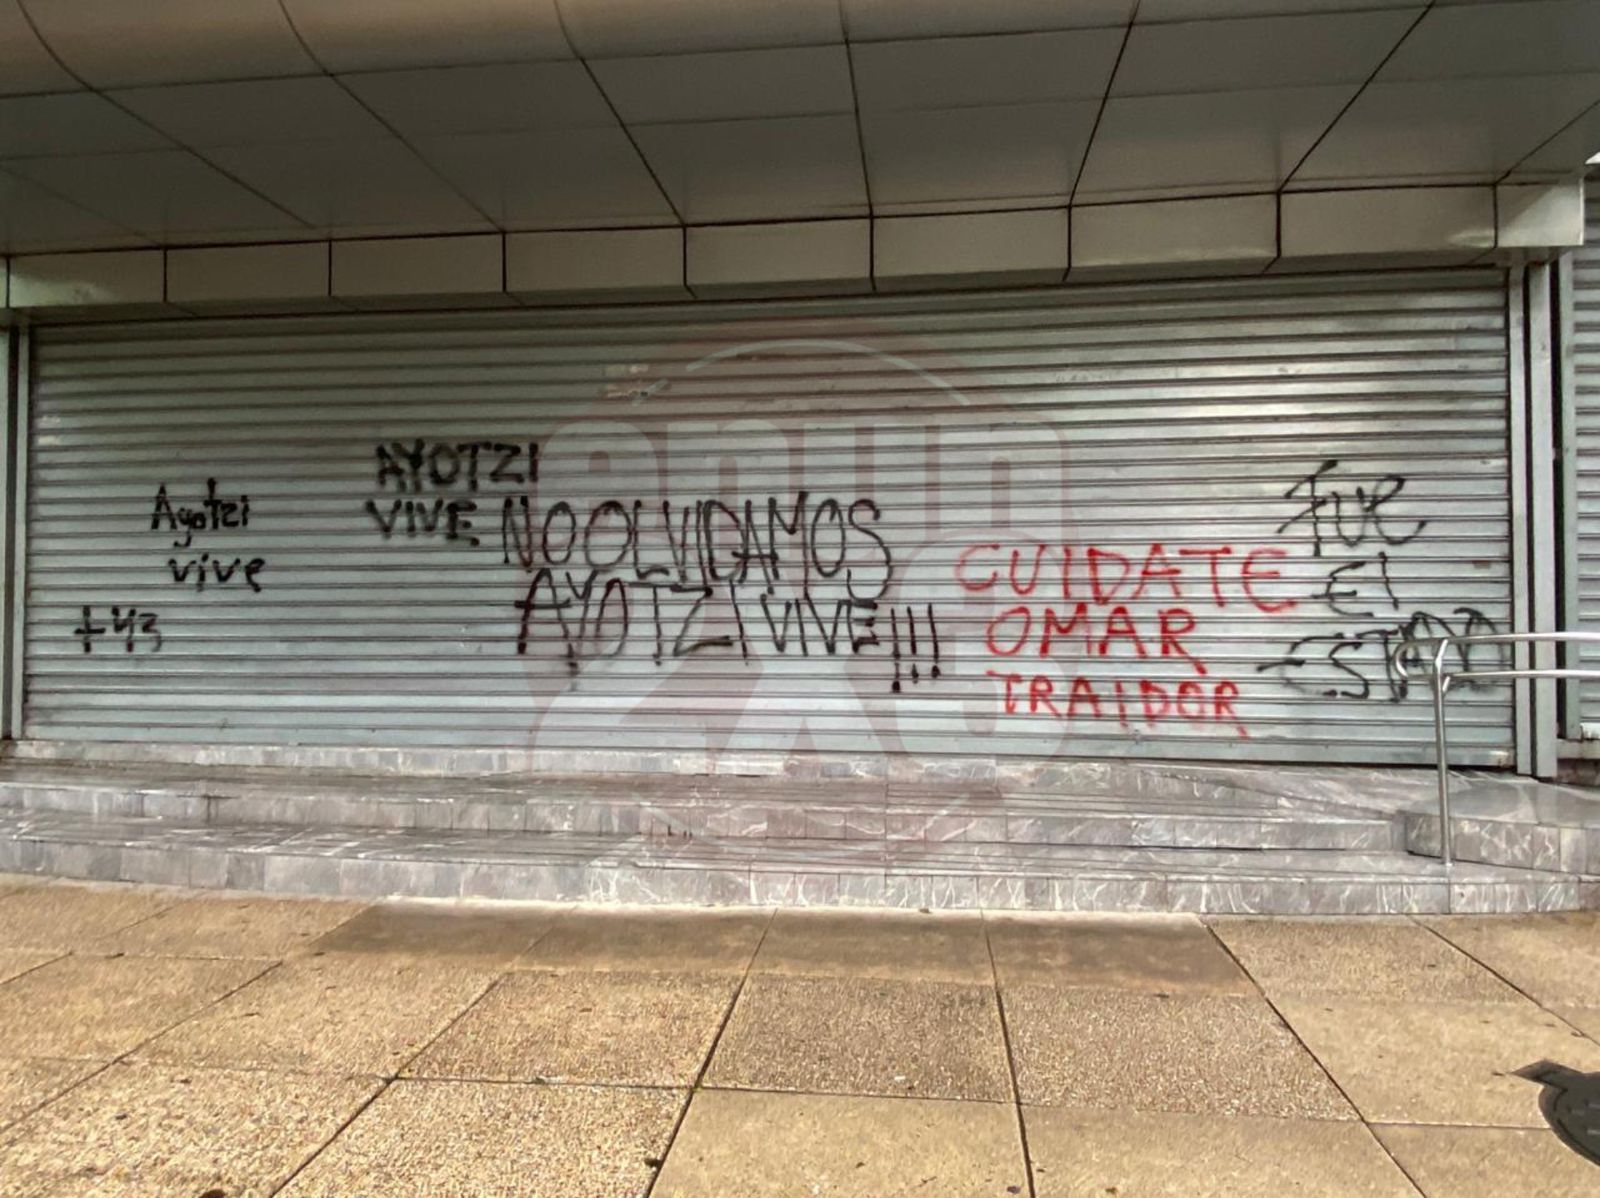 Ayotzi
vive
+43
AYOTZI
VIVE
NO OLVIDAMOS
AYOTZI VIVE!!!
CUIDATE
OMAR
TRAIDOR
fue
El
ESTADO
enun
2x3